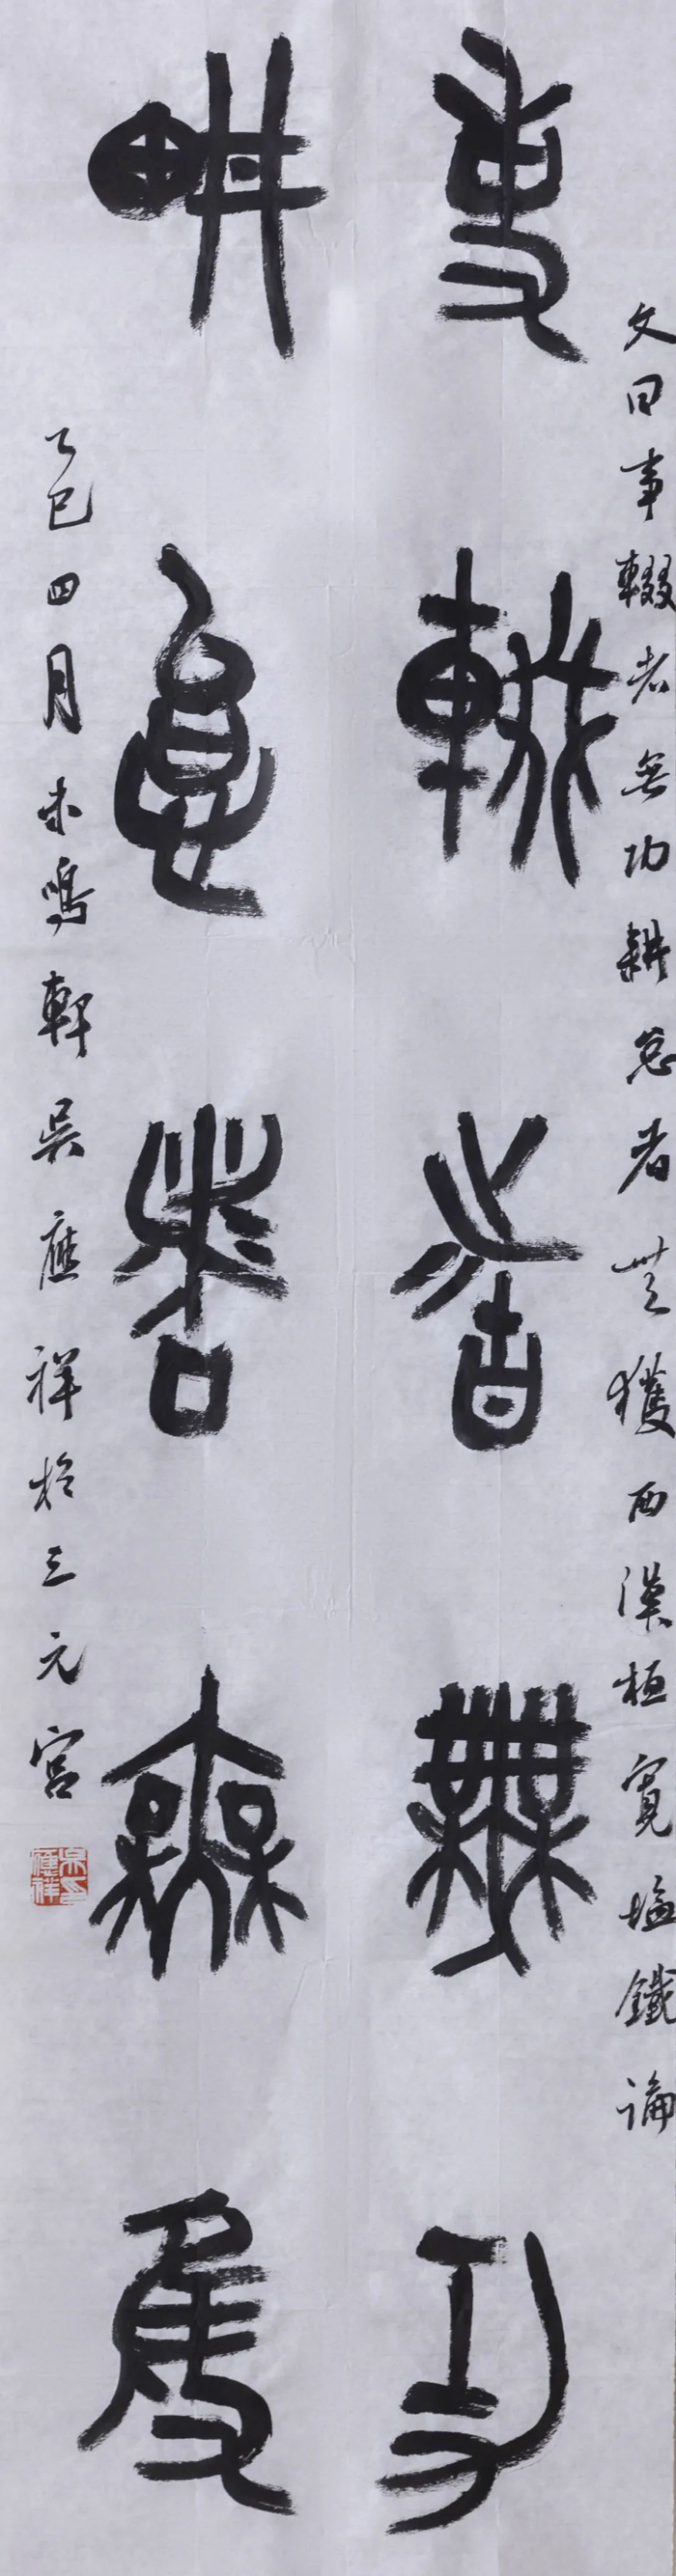 文曰事輟者無功耕怠者無獲西漢桓寬塩鐵論
事輟者無功
耕怠者無獲
乙巳四月未鳴軒吳應祥於三元宮
吳應祥印